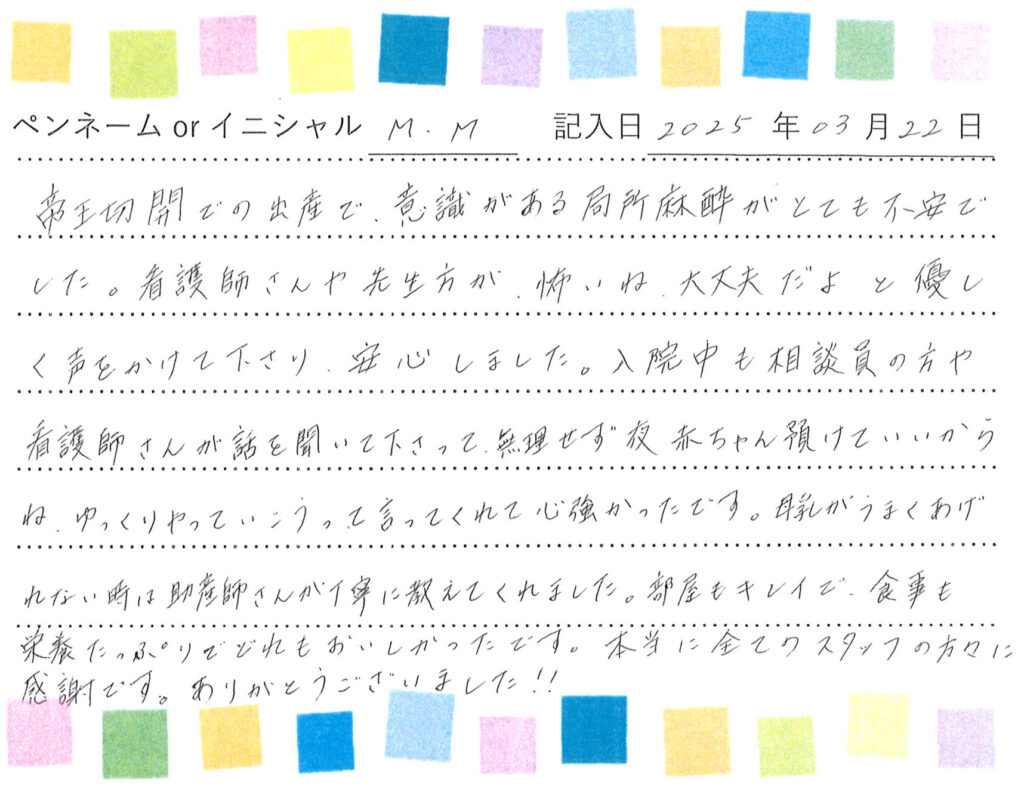 ペンネームorイニシャル M.M 記入日 2025 年 03 月 22 日
帝王切開での出産で、意識がある局所麻酔がとても不安で
した。看護師さんや先生方が、怖いね、大丈夫だよと優し
く声をかけて下さり、安心しました。入院中も相談員の方や
看護師さんが話を聞いて下さって、無理せず夜赤ちゃん預けていいから
ね、ゆっくりやっていこうって言ってくれて心強かったです。母乳がうまくあげ
れない時は助産師さんが丁寧に教えてくれました。部屋もキレイで、食事も
栄養たっぷりでどれもおいしかったです。本当に全てのスタッフの方々に
感謝です。ありがとうございました!!